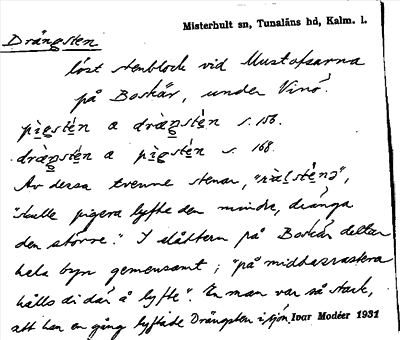 Misterhult sn, Tunaläns hd, Kalm. l.
Drängsten
löst stenblock vid Mustafsarna
på Boskär, under Vinö.
pìgstén a dràŋstèn s. 156.
dràŋstén a pìgstén s. 168.
Av dessa tvenne stenar,
"skulle pigera lyfte den mindre, dränga
den större." I slåttern på Boskär deltar
hela byn gemensamt; "på middasrastera
hålls di där å lyfte". En man var så stark,
att han en gång lyftade Drängsten i sjön. Ivar Modéer 1931